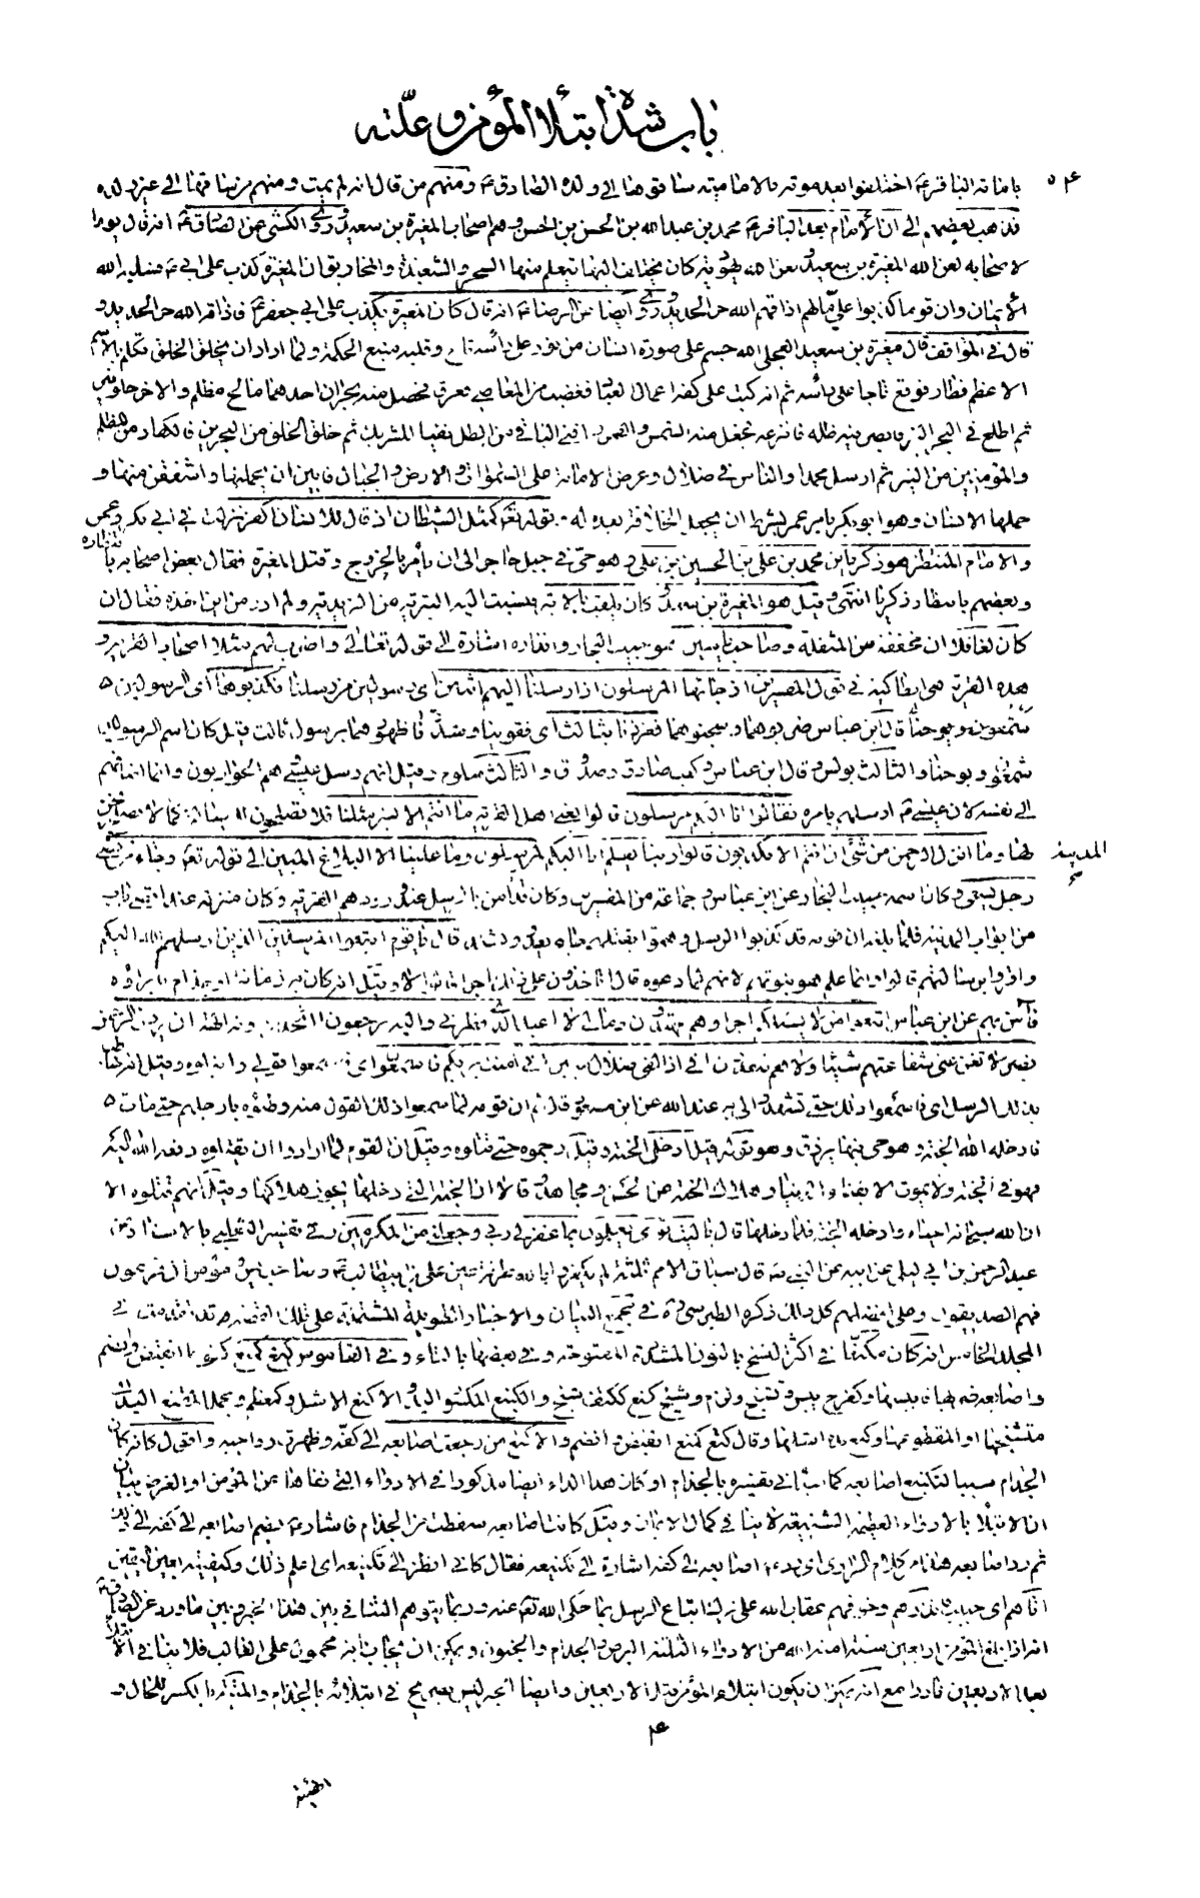 باب شدة ابتلاء المؤمن وعلّته
بامامة الباقر ع اختلفوا بعد موته بالامامية ساقوها الى ولده الصادق ع ومنهم من قال انه لم يمت ومنهم من ساقها الى غير ولده
فذهب بعضهم الى ان الأمام بعد الباقر ع محمد بن عبد الله بن الحسن بن الحسن وهم اصحاب المغيرة بن سعيد وروى الكشى عن الصادق ع انه قال يوما
لاصحابه لعن الله المغيرة بن سعيد ولعن الله يهودية كان يختلف اليها يتعلم منها السحر والشعبذة والمخاريق ان المغيرة كذب على ابى ع فسلبه الله
الأيمان وان قوما كذبوا علىّ مالهم اذاقهم الله حر الحديد وروى ايضا عن الرضا ع انه قال كان المغيرة يكذب على ابى جعفر ع فاذاقه الله حر الحديد و
قال فى المواقف قال مغيرة بن سعيد العجلى الله جسم على صورة انسان من نور على رأسه تاج وقلبه منبع الحكمة ولما اراد ان يخلق الخلق تكلم بالاسم
الاعظم فطار فوقع تاجا على رأسه ثم انه كتب على كفه اعمال العباد فغضب من المعاصى فعرق فحصل منه بحران احدهما مالح مظلم والاخر حلو نير
ثم اطلع فى البحر النير فابصر فيه ظله فانتزعه فجعل منه الشمس والقمر وافنى الباقى من الظل نفيا للشريك ثم خلق الخلق من البحرين فالكفار من المظلم
والمؤمنين من النير ثم ارسل محمدا والناس فى ضلال وعرض الامانة على السموات والارض والجبال فابين ان يحملنها واشفقن منها و
حملها الانسان وهو ابو بكر بامر عمر بشرط ان يجعل الخلافة بعده له وقوله تع كمثل الشيطان اذ قال للانسان اكفر نزلت فى ابى بكر وعمر
والامام المنتظر هو زكريا بن محمد بن على بن الحسين بن على وهو حى فى جبل حاجر الى ان يأمر بالخروج وقتل المغيرة فقال بعض اصحابه بانتظاره
وبعضهم بانتظار زكريا انتهى وقيل هو المغيرة بن سعد كان يلقب بالابتر فنسبت اليه البترية من الزيدية ولم ادر من اين اخذه فقال ان
كان لغافلا ان مخففة من المثقلة وصاحب ياسين هو حبيب النجار وانذاره اشارة الى قوله تعالى واضرب لهم مثلا اصحاب القرية و
هذه القرية هى انطاكية فى قول المفسرين اذ جائها المرسلون اذ ارسلنا اليهم اثنين اى رسولين من رسلنا فكذبوهما اى الرسولين
قال ابن عباس ضربوهما وسجنوهما فعززنا بثالث اى فقوينا وشددنا ظهورهما برسول ثالث قيل كان اسم الرسولين
شمعون ويوحنا والثالث بولس وقال ابن عباس وكعب صادق وصدوق والثالث سلوم وقيل انهم رسل عيسى وهم الحواريون وانما اضافهم
الى نفسه لان عيسى ع ارسلهم بامره فقالوا انا اليكم مرسلون قالوا يعنى اهل القرية ما انتم الا بشر مثلنا فلا تصلحون
المدينة
رجل يسعى وكان اسمه حبيب النجار عن ابن عباس وجماعة من المفسرين وكان قد آمن بالرسل عند ورودهم القرية وكان منزله عند اقصى باب
من ابواب المدينة فلما بلغه ان قومه قد كذبوا الرسل وهموا بقتلهم جاء يعدو ويشتد قال يا قوم اتبعوا المرسلين الذين ارسلهم الله اليكم
واقروا برسالتهم قالوا وانما علم هو بنبوتهم لانهم لما دعوه قال اتأخذون على ذلك اجرا قالوا لا وقيل انه كان به زمانة او جذام فابرأوه
فآمن بهم عن ابن عباس اتبعوا من لا يسئلكم اجرا وهم مهتدون ومالى لا اعبد الذى فطرنى واليه ترجعون ءاتخذ من دونه الهة ان يردن الرحمن
بضر لا تغن عنى شفاعتهم شيئا ولا هم ينقذون انى اذا لفى ضلال مبين انى امنت بربكم فاسمعون
بذلك الرسل اى فاسمعوا ذلك حتى تشهدوا لى به عند الله عن ابن مسعود قال ثم ان قومه لما سمعوا ذلك القول منه وطئوه بارجلهم حتى مات
فادخله الله الجنة وهو حى فيها يرزق وهو قوله قيل ادخل الجنة وقيل رجموه حتى قتلوه وقيل ان القوم لما ارادوا ان يقتلوه رفعه الله اليه
فهو فى الجنة ولا يموت الا بفناء الدنيا وهلاك الجنة عن الحسن ومجاهد قالا ان الجنة التى دخلها يجوز هلاكها وقيل انهم قتلوه الا
ان الله سبحانه احياه وادخله الجنة فلما دخلها قال يا ليت قومى يعلمون بما غفر لى ربى وجعلنى من المكرمين وفى تفسير الثعلبى بالاسناد عن
عبد الرحمن بن ابى ليلى عن ابيه عن النبى ص قال سباق الامم ثلثة لم يكفروا بالله طرفة عين على بن ابيطالب ع وصاحب يس ومؤمن ال فرعون
فهم الصديقون وعلى افضلهم كل ذلك ذكره الطبرسى ره فى مجمع البيان والاخبار الطويلة المشتملة على تلك القصة قد تقدمت فى
المجلد الخامس انه كان مكنّعا فى اكثر النسخ بالنون المشددة المفتوحة وفى بعضها بالتاء وفى القاموس كنع كمنع كنوعا انقبض وانضم
واصابعه ضربها فايبسها وكفرح يبس وتشنج ولزم وشيخ كنع ككتف شنج والكنيع المكسور اليد والاكنع الاشل وكمعظم ومجمل المقفع اليد او
متشنجها او المقطوعها وقال كتع كمنع انقبض وانضم والاكتع من رجعت اصابعه الى كفه وظهرت رواجبه واقول كانه كان
الجذام سببا لتكنيع اصابعه كما سيأتى تفسيره بالجذام او كان هذا الداء ايضا مذكورا فى الادواء التى نفاها عن المؤمن او الغرض بيان
ان الابتلاء بالادواء العظيمة الشنيعة لا ينافى كمال الايمان وقيل كانت اصابعه سقطت من الجذام فاشار ع بضم اصابعه الى كفه الى ذلك
ثم رد اصابعه هذا من كلام الراوى اى رد ع اصابعه الى كفه اشارة الى تكنيعه فقال كانى انظر الى تكنيعه اى اعلم ذلك وكيفيته بعين اليقين
اتاهم اى حبيب فانذرهم وخوفهم عقاب الله على ترك اتباع الرسل بما حكى الله تع عنه وربما يتوهم التنافى بين هذا الخبر وبين ما ورد عن الصادق ع
انه اذا بلغ المؤمن اربعين سنة امنه الله من الادواء الثلثة البرص والجذام والجنون ويمكن ان يجاب بانه محمول على الغالب فلا ينافى الابتلاء
بعد الاربعين نادرا مع انه يمكن ان يكون ابتلاء المؤمن قبل الاربعين وايضا الخبر ليس بصريح فى ابتلائه بالجذام والميتة بالكسر للحال و
الهيئة